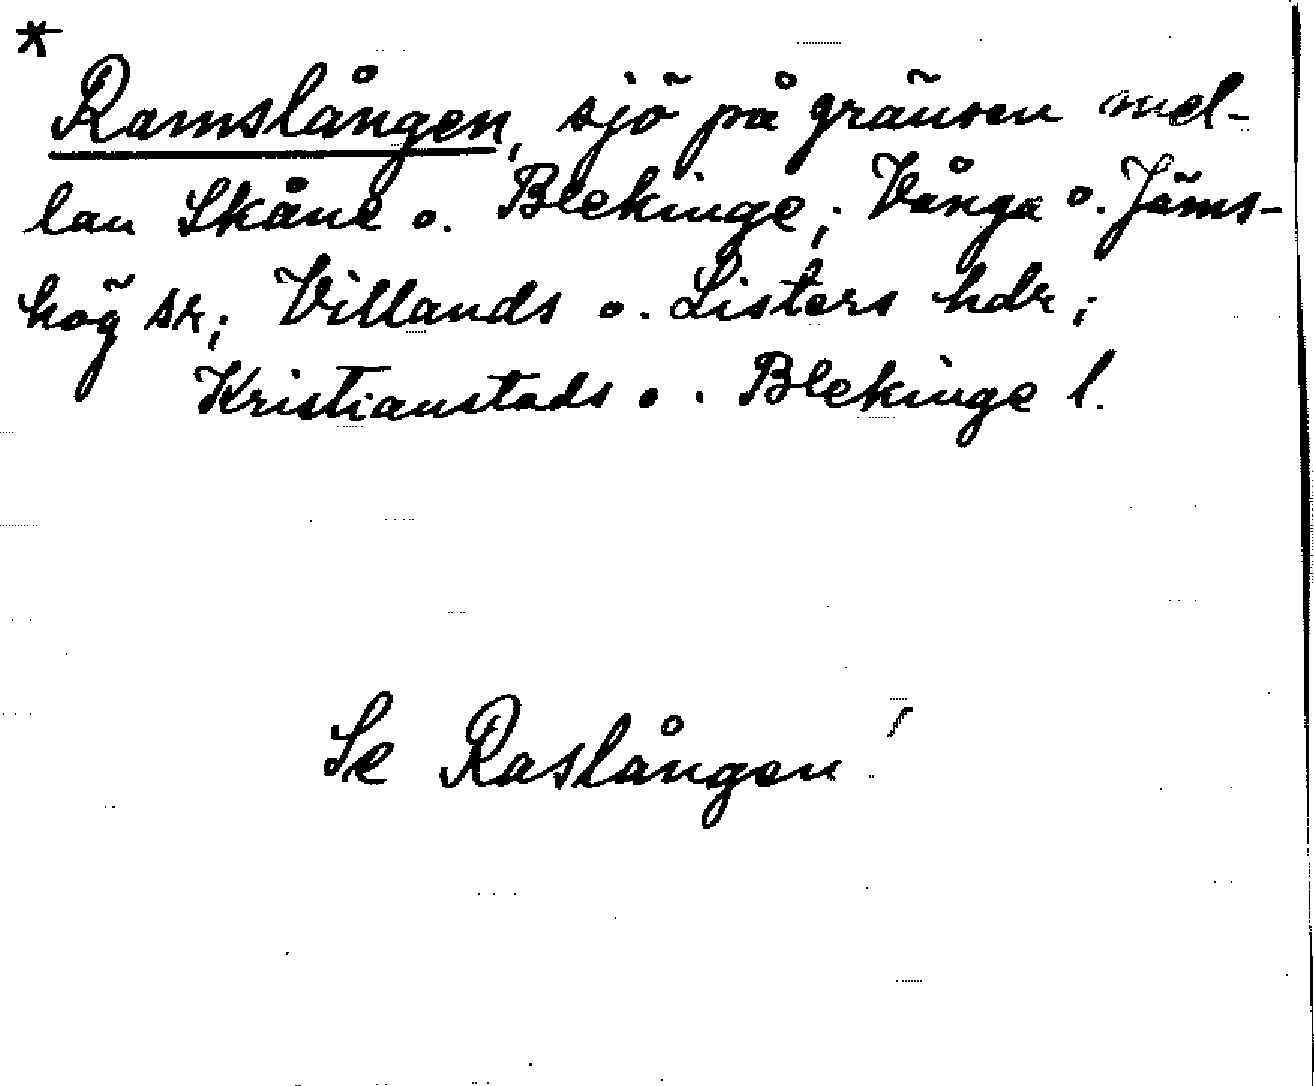 * Ramslången, sjö på gränsen mel-
lan Skåne o. Blekinge; Vånga o. Jäms-
hög sr; Villands o. Listers hdr;
Kristianstads o. Blekinge l.
Se Raslången!